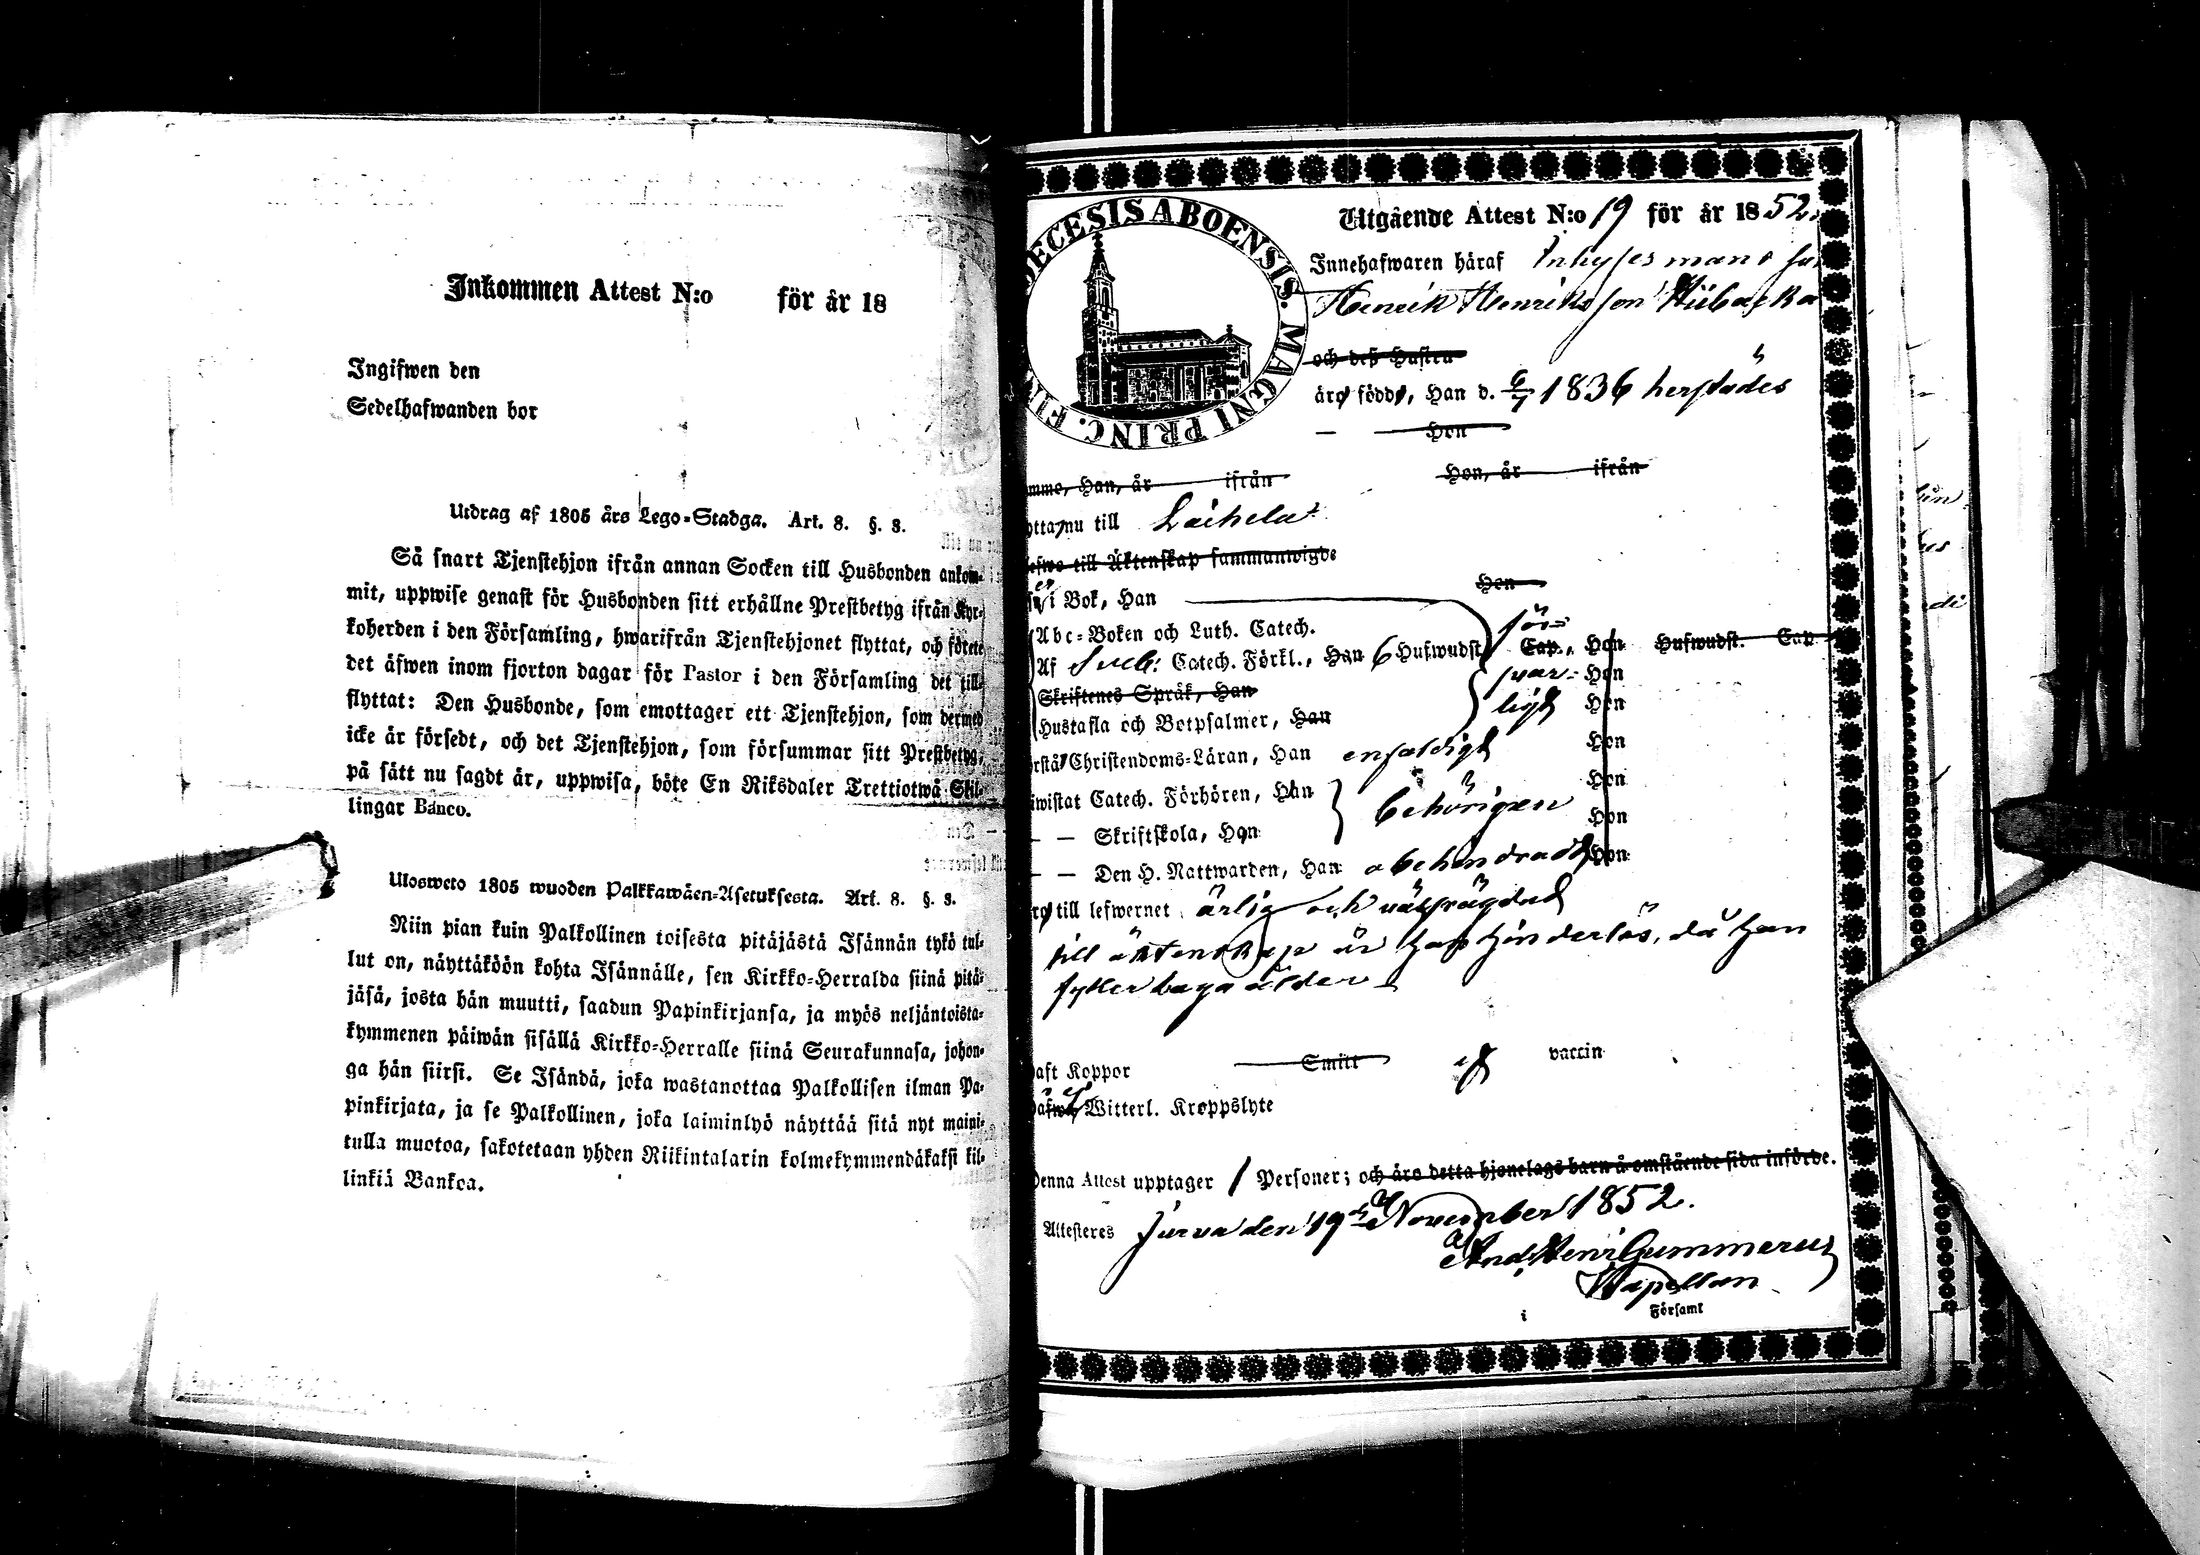 Inkommen Attest N:o för år 18
Ingifwen den
Sedelhafwanden bor
Utdrag af 1805 års Lego-Stadga. Art. 8. §. 8.
Så snart Tjenstehjon ifrån annan Socken till Husbonden ankom-
mit, uppwise genast för Husbonden sitt erhållne Prestbetyg ifrån Kyr-
koherden i den Församling, hwarifrån Tjenstehjonet flyttat, och förete
det äfwen inom fjorton dagar för Pastor i den Församling det till-
flyttat: Den Husbonde, som emottager ett Tjenstehjon, som dermed
icke är försedt, och det Tjenstehjon, som försummar sitt Prestbetyg,
på sätt nu sagdt är, uppwisa, böte En Riksdaler Trettiotwå Skil-
lingar Banco.
Ulosweto 1805 wuoden Palkkawäen-Asetuksesta. Art. 8. §. 8.
Niin pian kuin Palkollinen toisesta pitäjästä Isännän tykö tul-
lut on, näyttäköön kohta Isännälle, sen Kirkko-Herralda siinä pitä-
jäsä, josta hän muutti, saadun Papinkirjansa, ja myös neljäntoista-
kymmenen päiwän sisällä Kirkko-Herralle siinä Seurakunnasa, johon-
ga hän siirsi. Se Isändä, joka wastanottaa Palkollisen ilman Pa-
pinkirjata, ja se Palkollinen, joka laiminlyö näyttää sitä nyt maini-
tulla muotoa, sakotetaan yhden Riikintalarin kolmekymmendäkaksi kil-
linkiä Bankoa.
DECESIS ABOENSIS. MAGNI PRINC. FI
Utgående Attest N:o 19 för år 1852.
Innehafwaren häraf Inhysesmans
Henrik Henriksson Kiibacka
och deß Hustru
äro födde, Han d. 6/7 1836 herstädes
— Hon
mmo, Han, år ifrån Hon, år ifrån
ytta nu till Laihela
efwo till Äktenskap sammanwigde
i Bok, Han Hon
Abc-Boken och Luth. Catech. för-
Af Sveb: Catech. Förkl., Han 6 Hufwudst. Cap., Hon Hufwudst. Cap
Skriftenes Språk, Han svar- Hon
Hustafla och Botpsalmer, Han ligt Hon
rstå Christendoms-Läran, Han enfaldigt Hon
iwistat Catech. Förhören, Han behörigen Hon
— — Skriftskola, Han Hon
— — Den H. Nattwarden, Han obehindradt Hon
till lefwernet ärlig och välfrägdad
till äktenskap är han hinderlös, då han
fyller laga ålder
aft Koppor Smitt ej vaccin
Witterl. Kroppslyte
Denna Attest upptager 1 Personer; och äro detta hjonelags barn å omstående sida införde.
Attesteres Jurva den 19de November 1852.
And. Henr Gummerus
Kapellan
i Församl